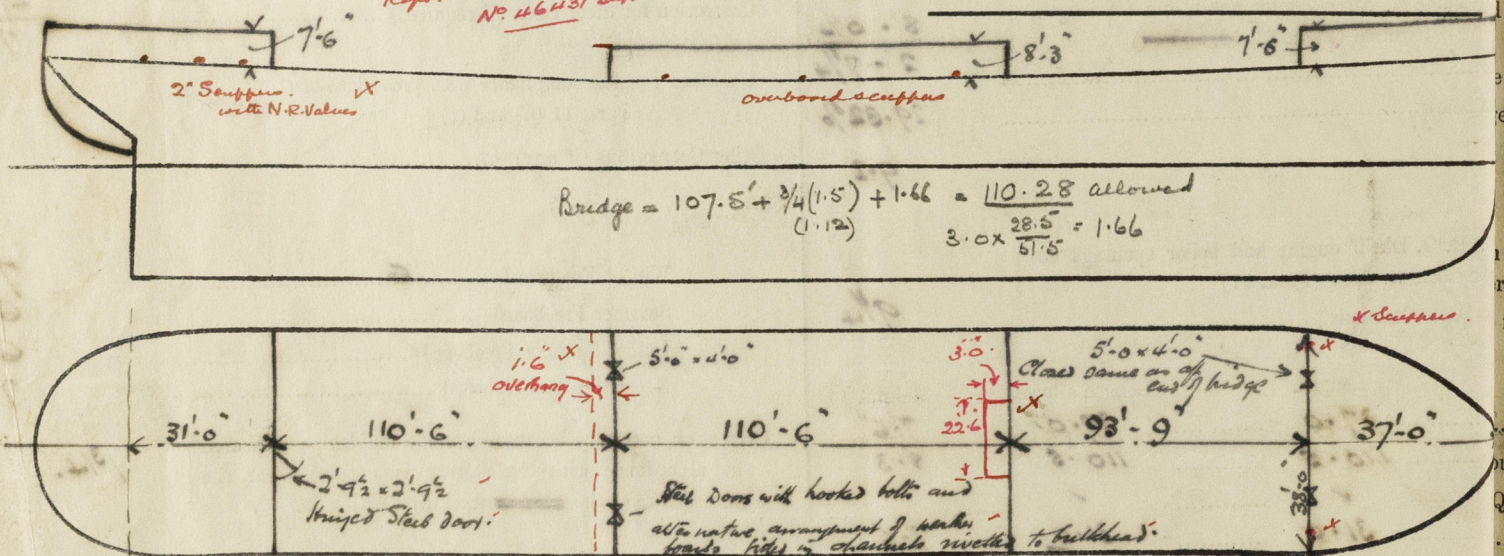 Nº 46431
7'-6"
8'-3"
7'-6"
2" Scuppers.
with N.R. Valves
overboard scuppers
Bridge = 107.5' + 3/4(1.5) + 1.66 = 110.28 allowed
(1.12)
3.0 x 28.5/51.5 = 1.66
x Scuppers.
1'.6" x
overhang
5'-0" x 4'-0"
3'.0"
5'-0 x 4'-0"
Closed same as aft
end of bridge
x
x
31'-0"
110'-6"
110'-6"
22'.6
x
93'-9"
37'-0"
2'-9½ x 2'-9½
Hinged Steel door.
Steel Doors with hooked bolts and
alternative arrangement of weather
boards fitted in channels rivetted to bulkhead.
38'-0
x